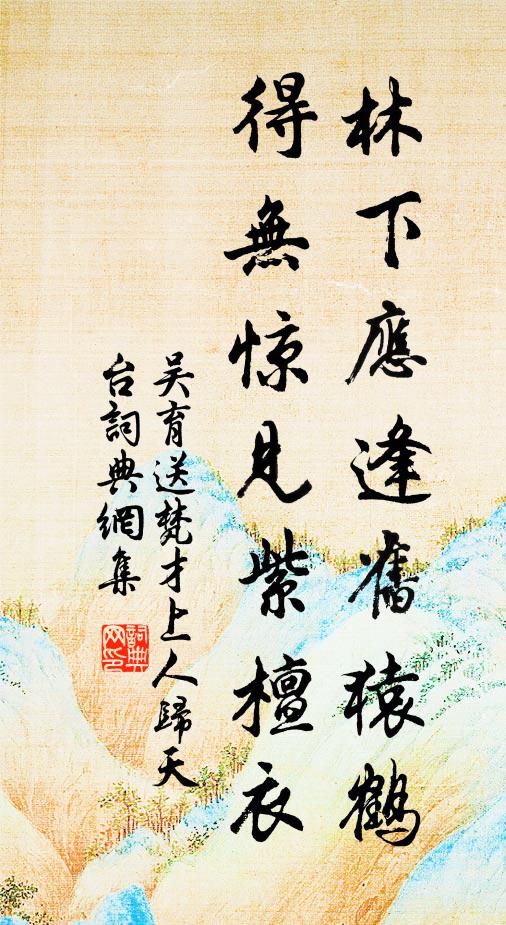 林下應逢舊猿鶴
得無惊見紫檀衣
吴育送梵才上人歸天
台詞典網集
詞典
网印